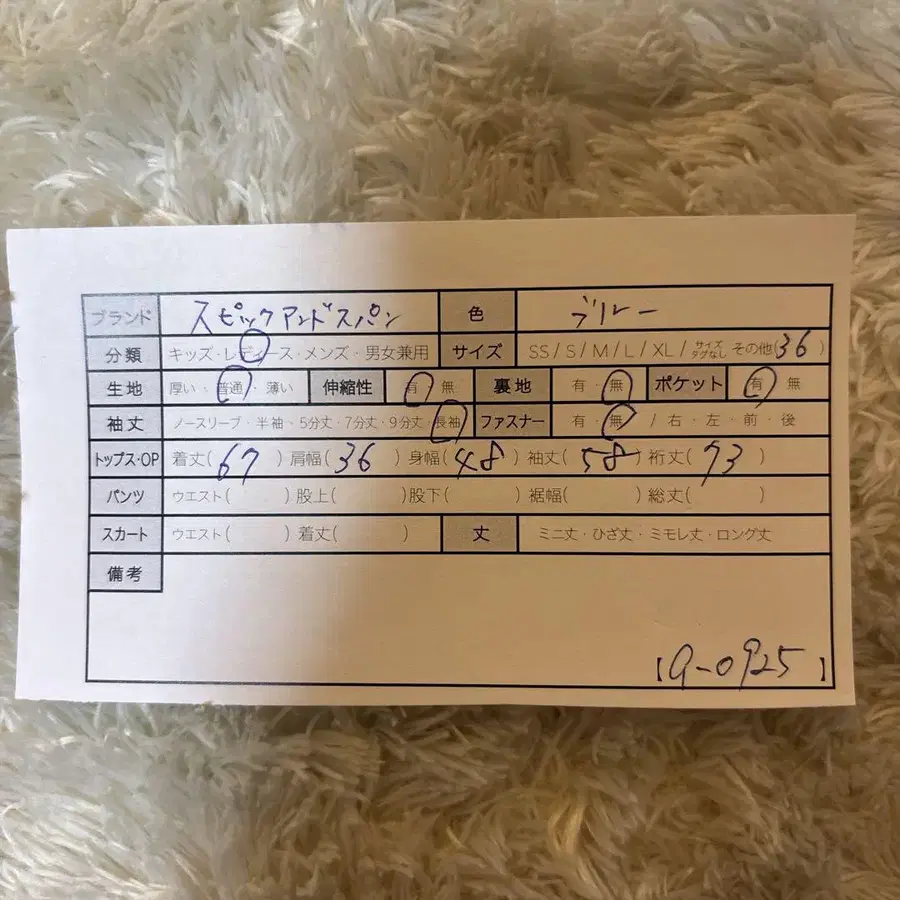 ブランド スピックアンドスパン 色 ブルー
分類 キッズ・レディース・メンズ・男女兼用 サイズ SS / S / M / L / XL / サイズタグなし その他(36)
生地 厚い・普通・薄い 伸縮性 有・無 裏地 有・無 ポケット 有・無
袖丈 ノースリーブ・半袖・5分丈・7分丈・9分丈・長袖 ファスナー 有・無 / 右・左・前・後
トップス・OP 着丈(67) 肩幅(36) 身幅(48) 袖丈(58) 裄丈(73)
パンツ ウエスト( ) 股上( ) 股下( ) 裾幅( ) 総丈( )
スカート ウエスト( ) 着丈( ) 丈 ミニ丈・ひざ丈・ミモレ丈・ロング丈
備考
【a-0925】